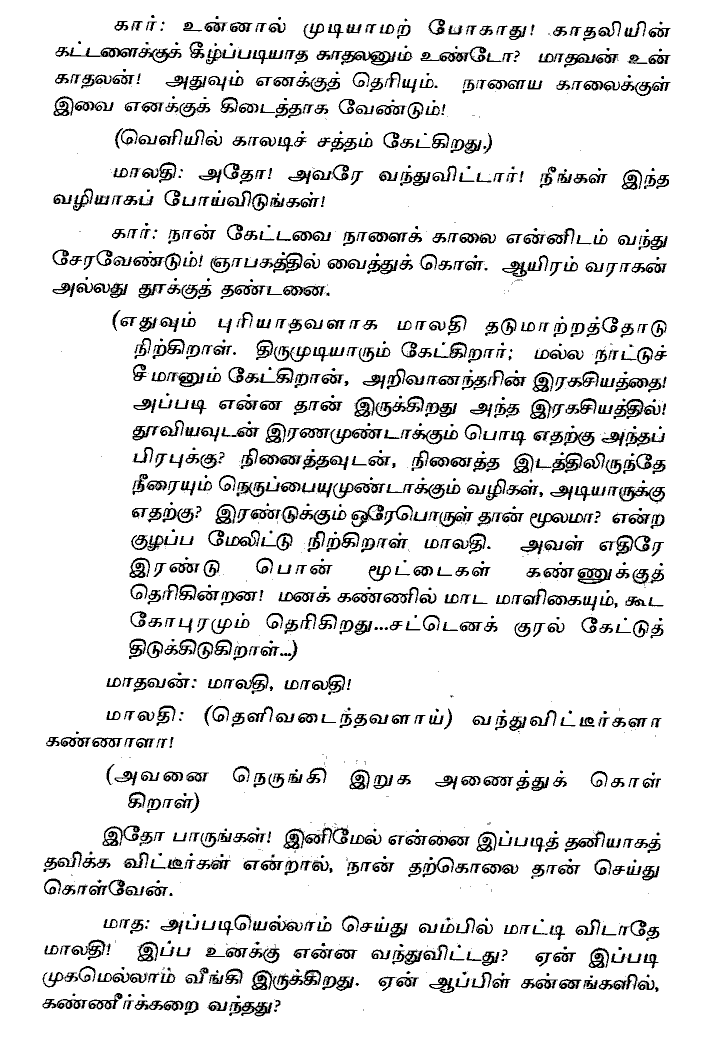 கார்: உன்னால் முடியாமற் போகாது! காதலியின்
கட்டளைக்குக் கீழ்ப்படியாத காதலனும் உண்டோ? மாதவன் உன்
காதலன்! அதுவும் எனக்குத் தெரியும். நாளைய காலைக்குள்
இவை எனக்குக் கிடைத்தாக வேண்டும்!
(வெளியில் காலடிச் சத்தம் கேட்கிறது.)
மாலதி: அதோ! அவரே வந்துவிட்டார்! நீங்கள் இந்த
வழியாகப் போய்விடுங்கள்!
கார்: நான் கேட்டவை நாளைக் காலை என்னிடம் வந்து
சேரவேண்டும்! ஞாபகத்தில் வைத்துக் கொள். ஆயிரம் வராகன்
அல்லது தூக்குத் தண்டனை.
(எதுவும் புரியாதவளாக மாலதி தடுமாற்றத்தோடு
நிற்கிறாள். திருமுடியாரும் கேட்கிறார்; மல்ல நாட்டுச்
சீமானும் கேட்கிறான், அறிவானந்தரின் இரகசியத்தை!
அப்படி என்ன தான் இருக்கிறது அந்த இரகசியத்தில்!
தூவியவுடன் இரணமுண்டாக்கும் பொடி எதற்கு அந்தப்
பிரபுக்கு? நினைத்தவுடன், நினைத்த இடத்திலிருந்தே
நீரையும் நெருப்பையுமுண்டாக்கும் வழிகள், அடியாருக்கு
எதற்கு? இரண்டுக்கும் ஒரேபொருள் தான் மூலமா? என்ற
குழப்ப மேலிட்டு நிற்கிறாள் மாலதி. அவள் எதிரே
இரண்டு பொன் மூட்டைகள் கண்ணுக்குத்
தெரிகின்றன! மனக் கண்ணில் மாட மாளிகையும், கூட
கோபுரமும் தெரிகிறது...சட்டெனக் குரல் கேட்டுத்
திடுக்கிடுகிறாள்...)
மாதவன்: மாலதி, மாலதி!
மாலதி: (தெளிவடைந்தவளாய்) வந்துவிட்டீர்களா
கண்ணாளா!
(அவனை நெருங்கி இறுக அணைத்துக் கொள்
கிறாள்)
இதோ பாருங்கள்! இனிமேல் என்னை இப்படித் தனியாகத்
தவிக்க விட்டீர்கள் என்றால், நான் தற்கொலை தான் செய்து
கொள்வேன்.
மாத: அப்படியெல்லாம் செய்து வம்பில் மாட்டி விடாதே
மாலதி! இப்ப உனக்கு என்ன வந்துவிட்டது? ஏன் இப்படி
முகமெல்லாம் வீங்கி இருக்கிறது. ஏன் ஆப்பிள் கன்னங்களில்,
கண்ணீர்க்கறை வந்தது?